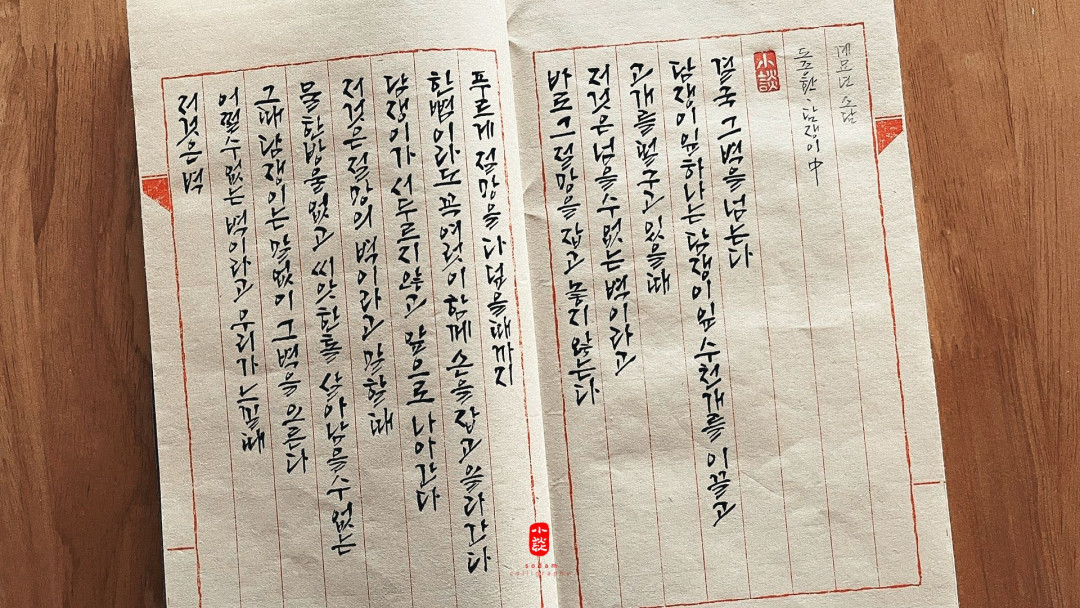 저것은 벽
어쩔수없는 벽이라고 우리가 느낄때
그때 담쟁이는 말없이 그 벽을 오른다
물 한방울 없고 씨앗한톨 살아남을수 없는
저것은 절망의 벽이라고 말할때
담쟁이가 서두르지 않고 앞으로 나아간다
한뼘이라도 꼭 여럿이 함께 손을 잡고 올라간다
푸르게 절망을 다 덮을때까지
바로 그 절망을 잡고 놓지 않는다
저것은 넘을수 없는 벽이라고
고개를 떨구고 있을때
담쟁이 잎 하나는 담쟁이 잎 수천개를 이끌고
결국 그 벽을 넘는다
小談
도종환. 담쟁이 中
소담
小談
sodam
calligraphy